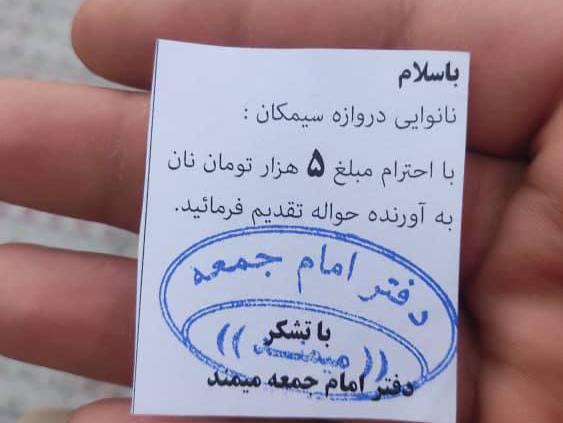 باسلام
نانوایی دروازه سیمکان :
با احترام مبلغ ۵ هزار تومان نان
به آورنده حواله تقدیم فرمائید.
دفتر امام جمعه
با تشکر
(( میمند ))
دفتر امام جمعه میمند